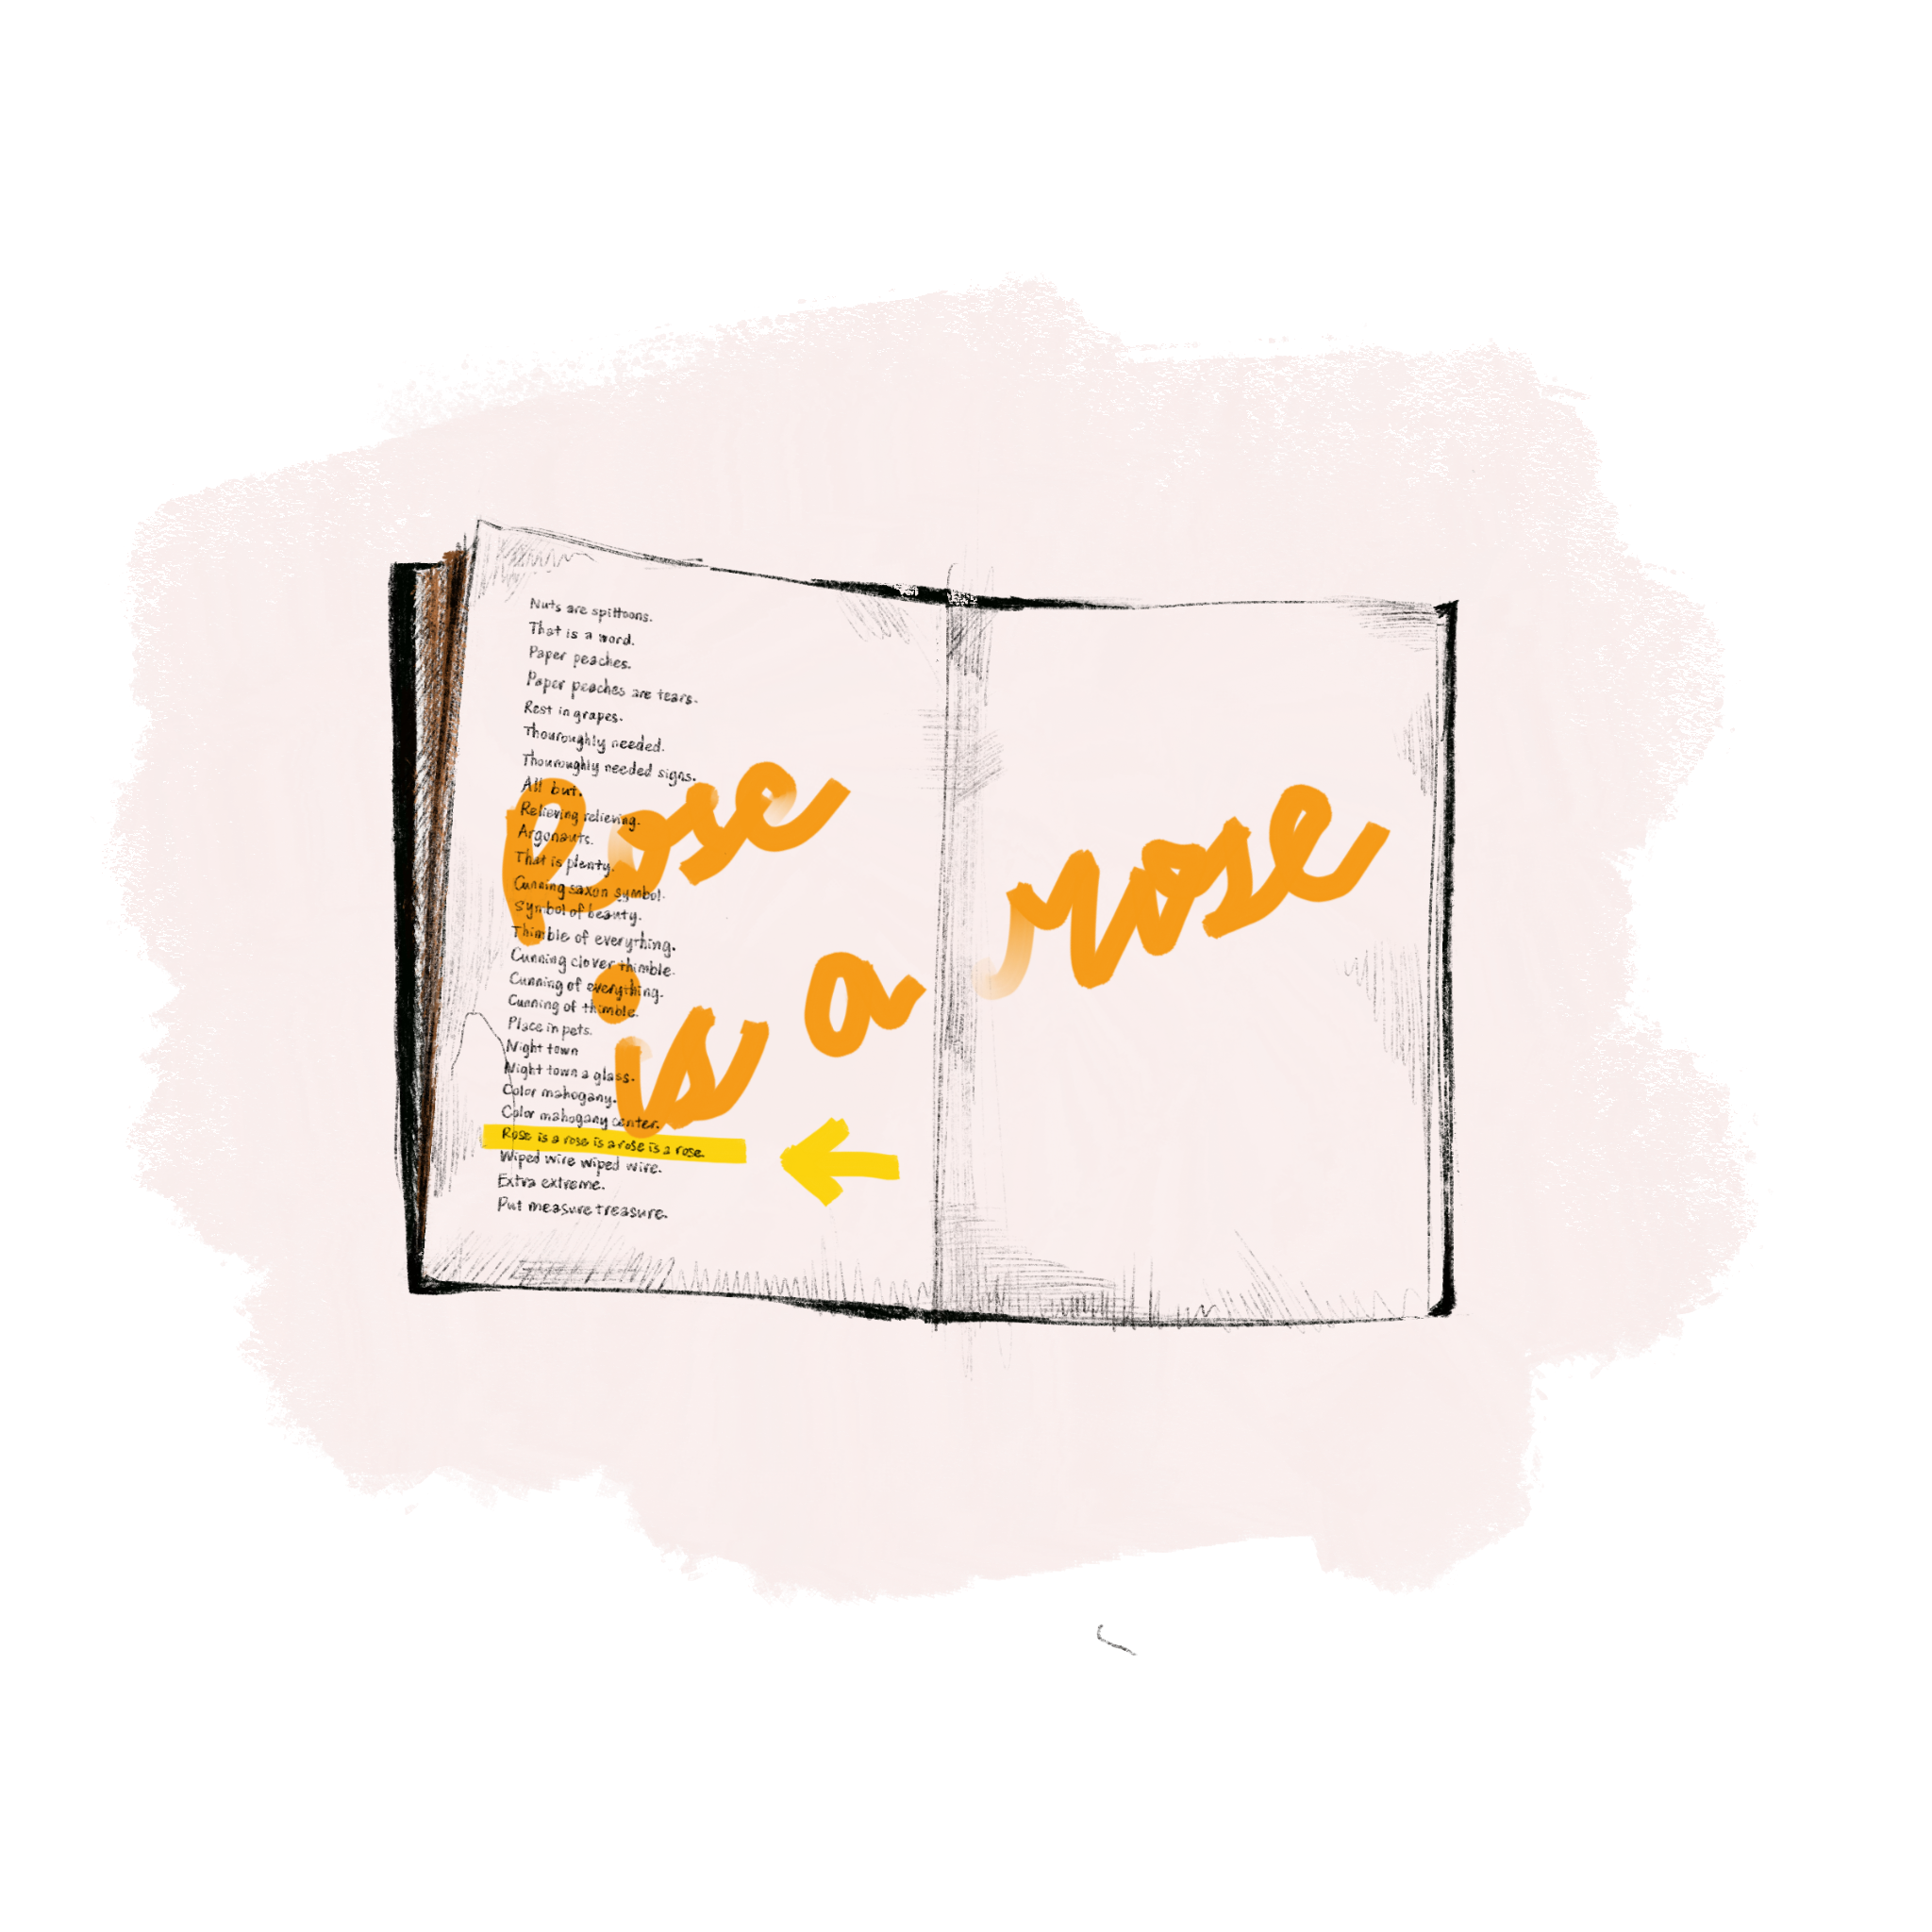 Nuts are spittoons.
That is a word.
Paper peaches.
Paper peaches are tears.
Rest in grapes.
Thouroughly needed.
Thouroughly needed signs.
All but.
Relieving relieving.
Argonauts.
That is plenty.
Cunning saxon symbol.
Symbol of beauty.
Thimble of everything.
Cunning clover thimble.
Cunning of everything.
Cunning of thimble.
Place in pets.
Night town
Night town a glass.
Color mahogany.
Color mahogany center.
Rose is a rose is a rose is a rose.
Wiped wire wiped wire.
Extra extreme.
Put measure treasure.
Rose
is a rose